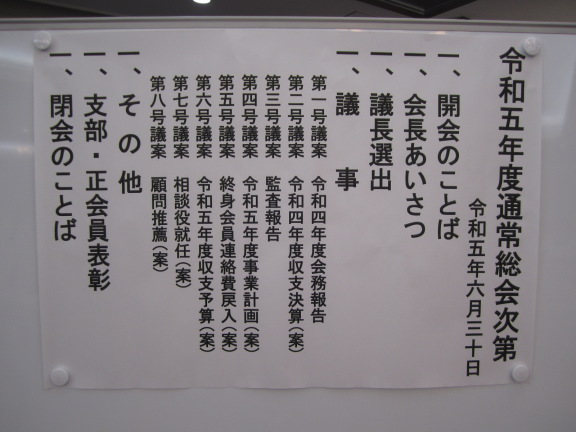 令和五年度通常総会次第
令和五年六月三十日
一、開会のことば
一、会長あいさつ
一、議長選出
一、議　事
第一号議案　令和四年度会務報告
第二号議案　令和四年度収支決算（案）
第三号議案　監査報告
第四号議案　令和五年度事業計画（案）
第五号議案　終身会員連絡費戻入（案）
第六号議案　令和五年度収支予算（案）
第七号議案　相談役就任（案）
第八号議案　顧問推薦（案）
一、その他
一、支部・正会員表彰
一、閉会のことば